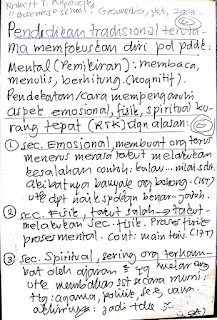 Robert T. Kiyosaki
"Business School", Gramedia, Jkt, 200
Pendidikan tradisional teruta-
ma memfokuskan diri pd pddk:
Mental (Pemikiran): membaca,
menulis, berhitung (kognitif).
Pendekatan/cara mempengaruhi
aspek emosional, fisik, spiritual ku-
rang tepat (KTK) dgn alasan:
① sec. Emosional, membuat org terus
menerus merasa takut melakukan
kesalahan contoh: kalau... nilai
akibatnya banyak org bohong
utk dpt naik
② sec. Fisik, takut salah → takut
melakukan sec. fisik. Proses fisik
proses mental. Cont: main tenis
③ sec. Spiritual, sering org terham-
bat oleh ajaran
utk membahas sst secara murni
ttg: agama, politik, sex, uang
akhirnya: jadi tdk